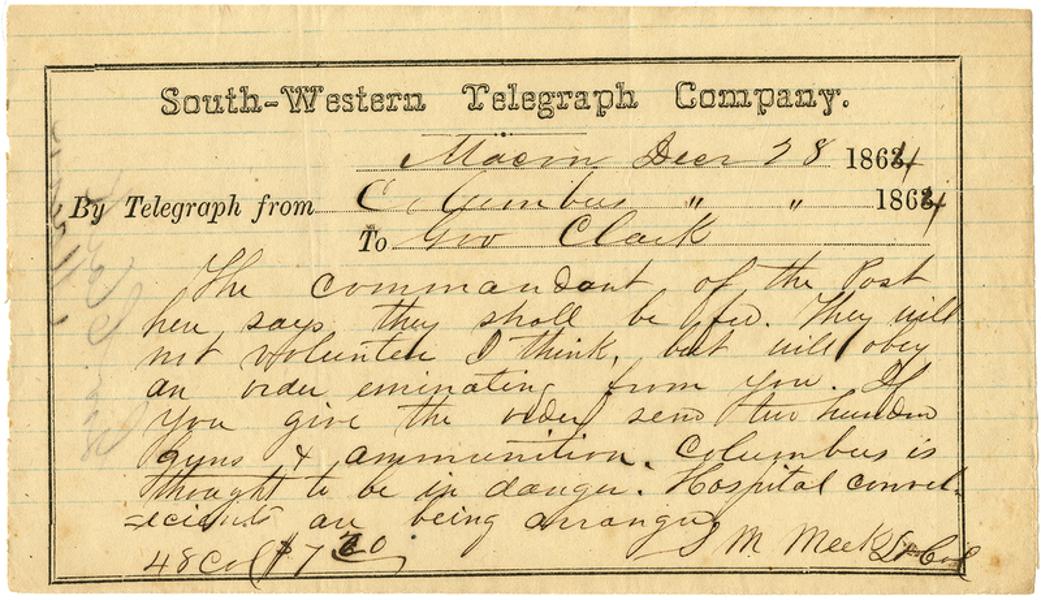 South-Western Telegraph Company.
Macon Decr 28 1864
By Telegraph from Columbus " " 1864
To Gov Clark
The commandant of the Post
here says they shall be fed. They will
not volunteer I think, but will obey
an order eminating from you. If
you give the order send two hundred
guns & ammunition. Columbus is
thought to be in danger. Hospital conval-
secients are being arranged
S M Meek Lt Col
48 Col $7 20